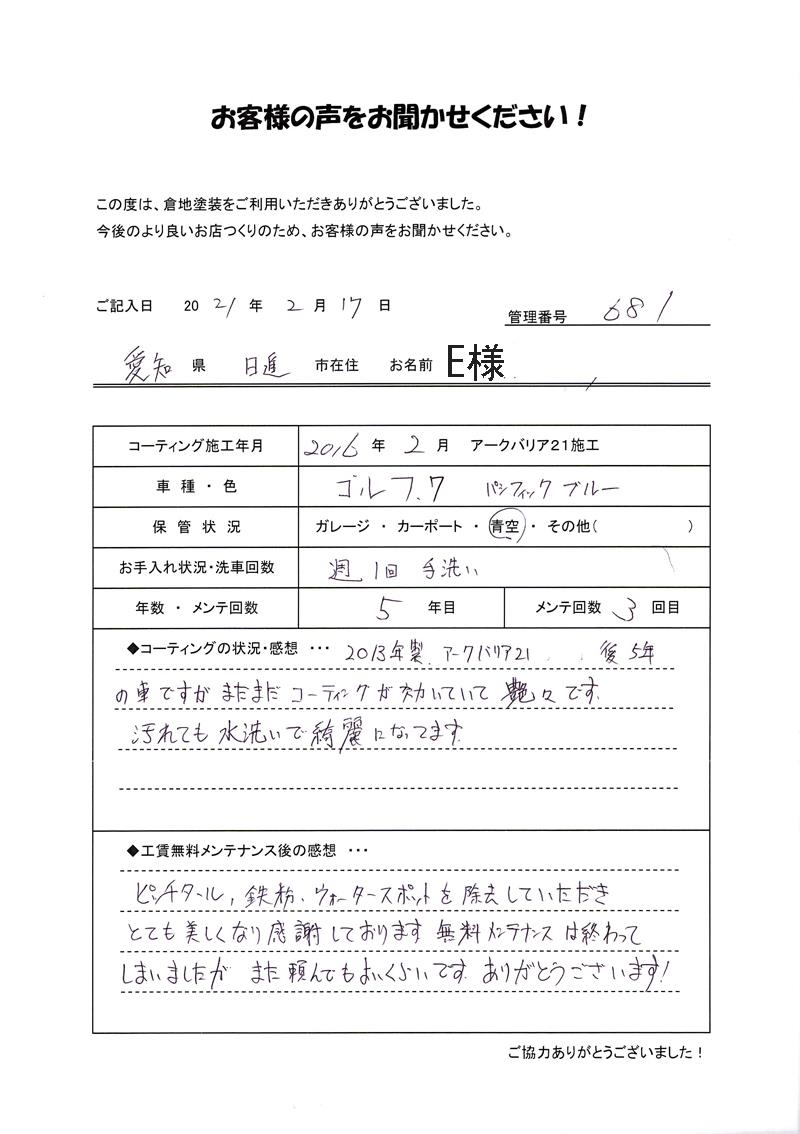 お客様の声をお聞かせください！
この度は、倉地塗装をご利用いただきありがとうございました。
今後のより良いお店つくりのため、お客様の声をお聞かせください。
ご記入日 2021年 2月 17日
管理番号 681
愛知 県 日進 市在住 お名前 E様
コーティング施工年月 2016年 2月 アークバリア21施工
車種・色 ゴルフ.7 パシフィック ブルー
保管状況 ガレージ ・ カーポート ・ 青空 ・ その他( )
お手入れ状況・洗車回数 週1回 手洗い
年数 ・ メンテ回数 5 年目 メンテ回数 3 回目
◆コーティングの状況・感想 ･･･ 2013年製 アークバリア21 後5年
の車ですが まだまだ コーティングが効いていて 艶々です
汚れても 水洗いで綺麗になってます
◆工賃無料メンテナンス後の感想 ･･･
ピッチタール, 鉄粉、ウォータースポットを除去していただき
とても美しくなり感謝しております 無料メンテナンスは終わって
しまいましたが また頼んでもよいくらいです ありがとうございます!
ご協力ありがとうございました！